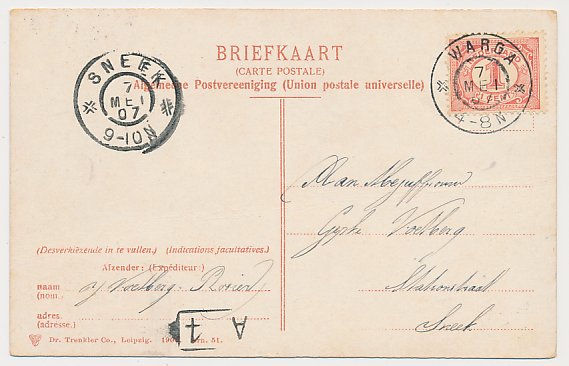 BRIEFKAART
(CARTE POSTALE)
Algemeene Postvereeniging (Union postale universelle)
SNEEK
7
MEI
07
9-10N
WARGA
7
MEI
4-8N
1
Aan Mejuffrouw
Voolberg
Stationstraat
Sneek
(Desverkiezende in te vullen.) (Indications facultatives.)
Afzender: (Expéditeur:)
naam
(nom.)
Voolberg-
adres
(adresse.)
A
1
Dr. Trenkler Co., Leipzig. 51.